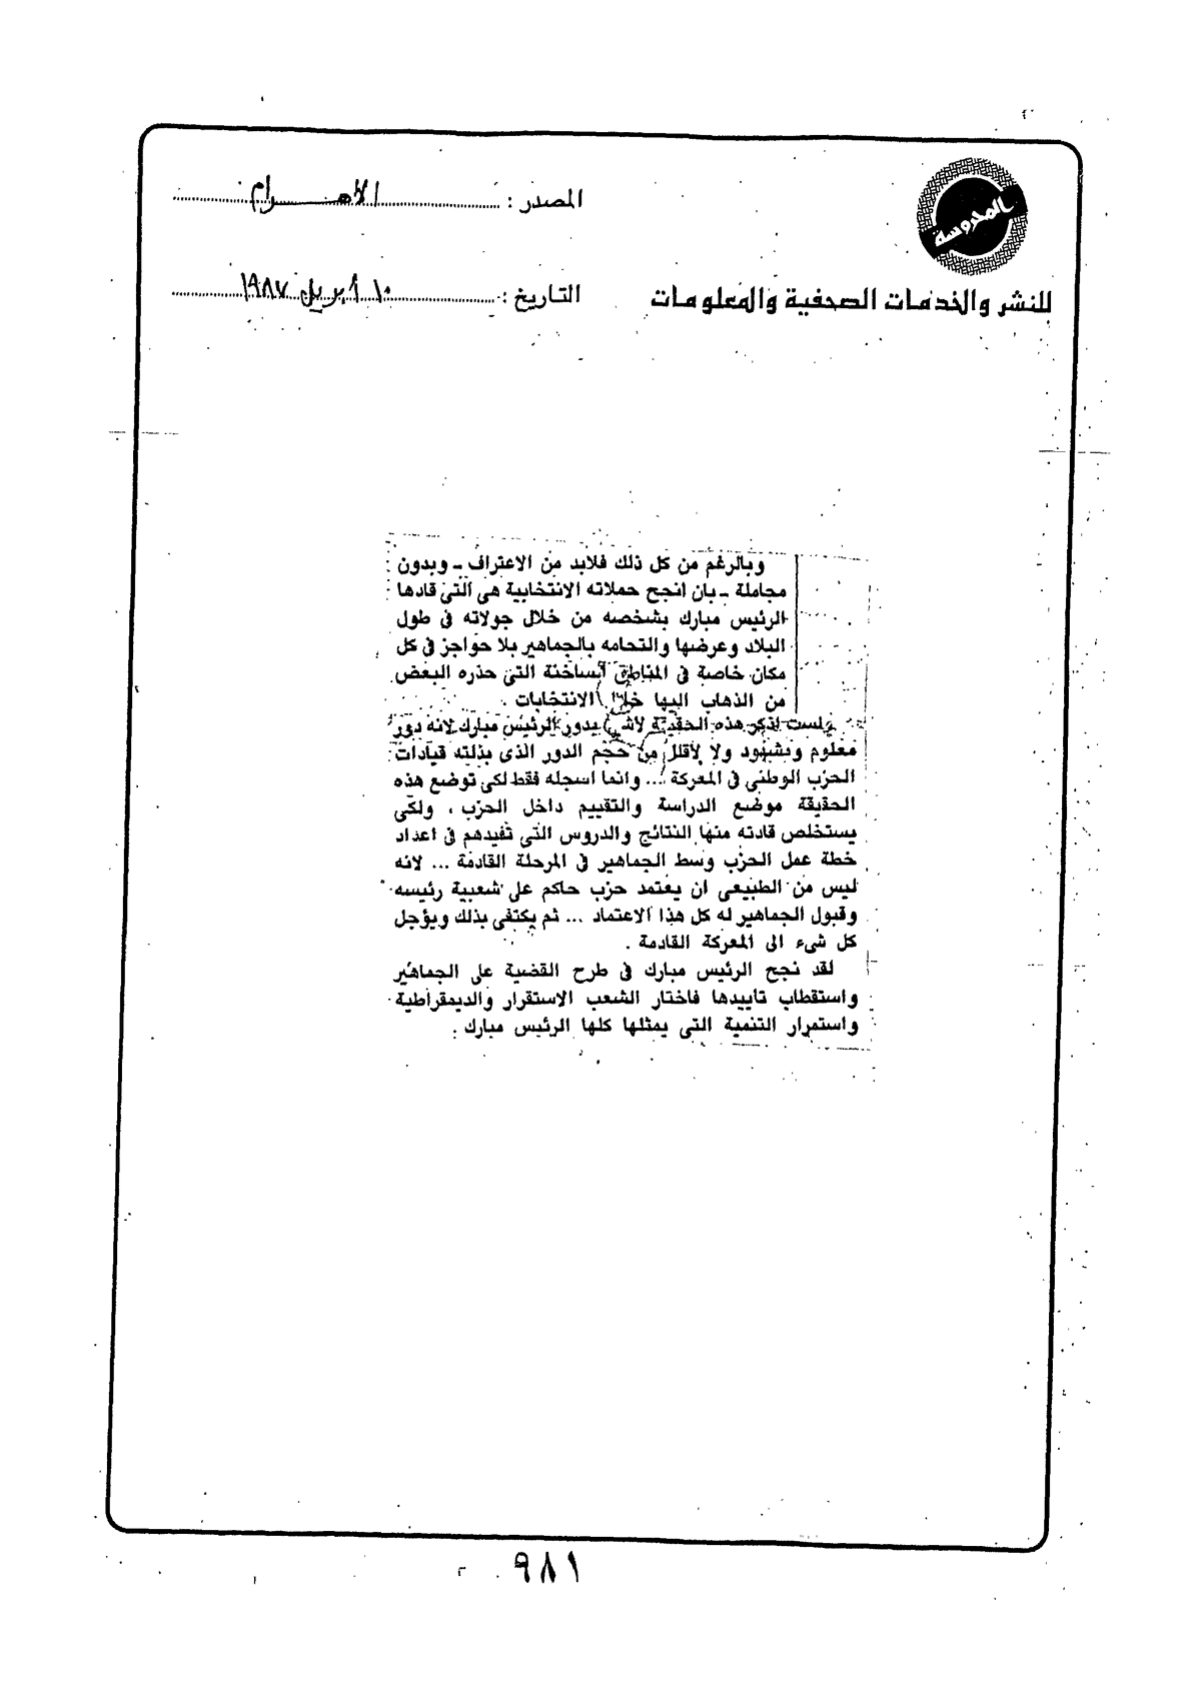 المحروسة
للنشر والخدمات الصحفية والمعلومات
المصدر : الأهــرام
التاريخ : ١٠ ابريل ١٩٨٧
وبالرغم من كل ذلك فلابد من الاعتراف ـ وبدون
مجاملة ـ بان انجح حملاته الانتخابية هى التى قادها
الرئيس مبارك بشخصه من خلال جولاته فى طول
البلاد وعرضها والتحامه بالجماهير بلا حواجز فى كل
مكان خاصة فى المناطق الساخنة التى حذره البعض
من الذهاب اليها خلال الانتخابات .
ولست اذكر هذه الحقيقة لاشيد بدور الرئيس مبارك لانه دور
معلوم ومشهود ولا لأقلل من حجم الدور الذى بذلته قيادات
الحزب الوطنى فى المعركة ... وانما اسجله فقط لكى توضع هذه
الحقيقة موضع الدراسة والتقييم داخل الحزب ، ولكى
يستخلص قادته منها النتائج والدروس التى تفيدهم فى اعداد
خطة عمل الحزب وسط الجماهير فى المرحلة القادمة ... لانه
ليس من الطبيعى ان يعتمد حزب حاكم على شعبية رئيسه
وقبول الجماهير له كل هذا الاعتماد ... ثم يكتفى بذلك ويؤجل
كل شىء الى المعركة القادمة .
لقد نجح الرئيس مبارك فى طرح القضية على الجماهير
واستقطاب تاييدها فاختار الشعب الاستقرار والديمقراطية
واستمرار التنمية التى يمثلها كلها الرئيس مبارك .
٩٨١